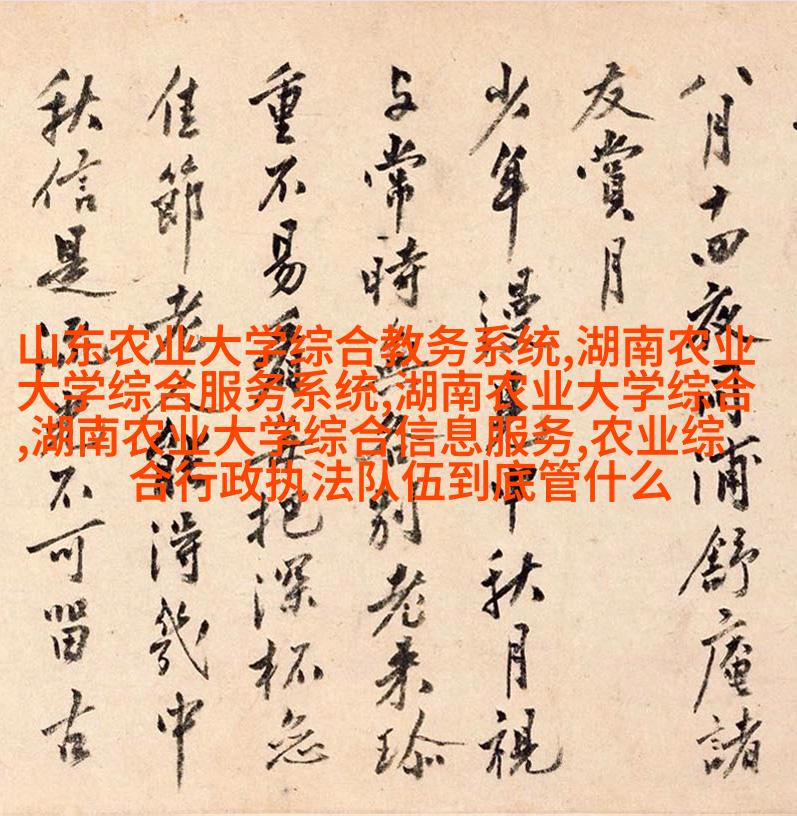 八月十四夜浦舒庵諸
友賞月
少年漫見中秋月視
与常時無分別老来珍
重不易看每把深杯
佳節老人能得幾中
秋信是流光不可留古
山东农业大学综合教务系统,湖南农业
大学综合服务系统,湖南农业大学综合
,湖南农业大学综合信息服务,农业综
合行政执法队伍到底管什么